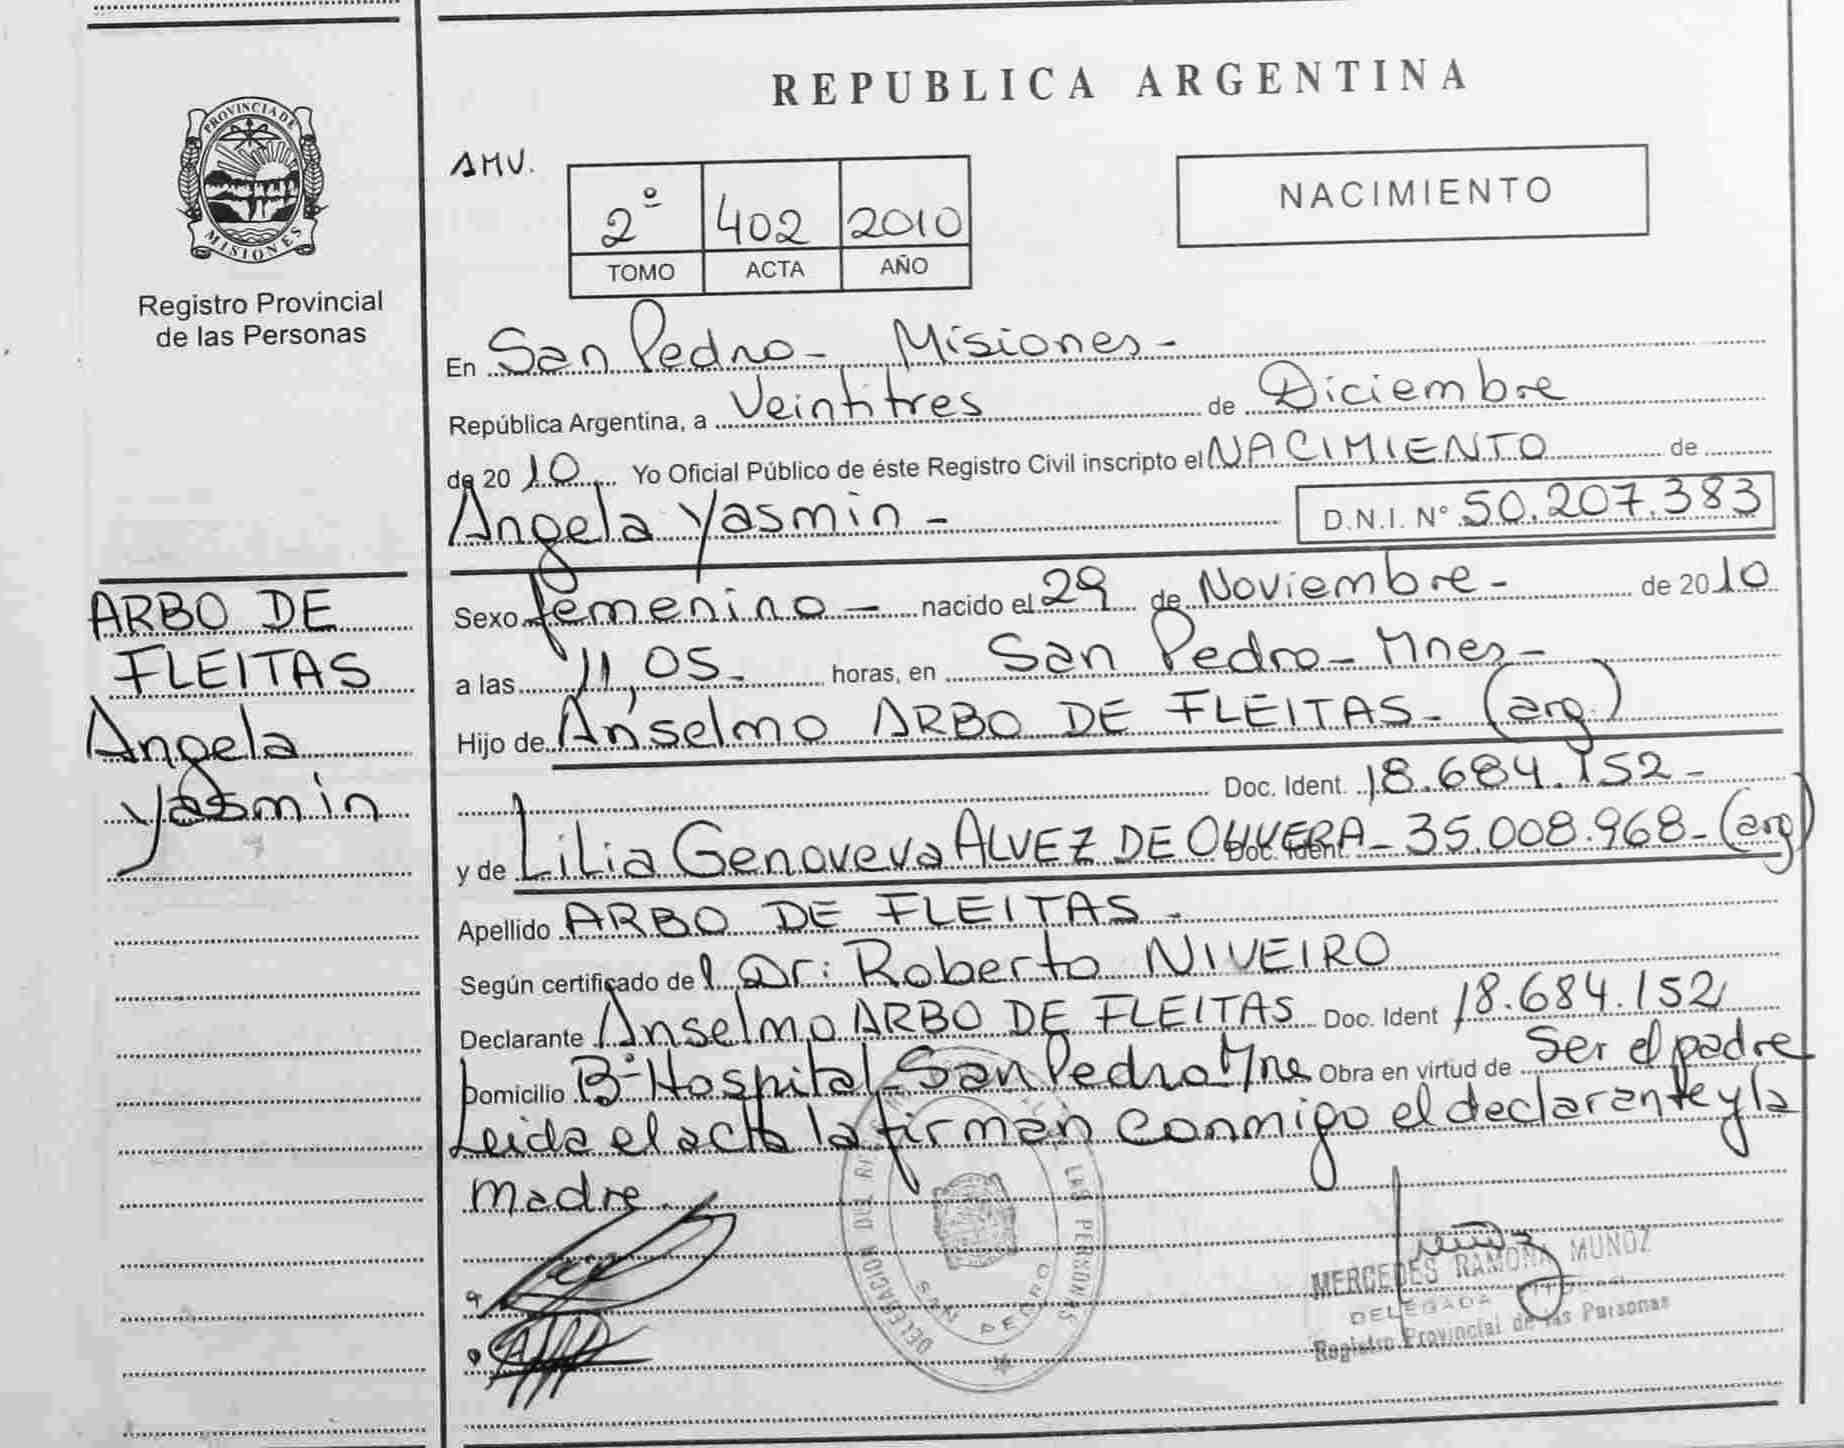 REPUBLICA ARGENTINA
PROVINCIA DE
MISIONES
Registro Provincial
de las Personas
AMV.
2º 402 2010
TOMO ACTA AÑO
NACIMIENTO
En San Pedro - Misiones -
República Argentina, a Veintitres de Diciembre
de 20 10 Yo Oficial Público de éste Registro Civil inscripto el NACIMIENTO de
Angela Yasmin - D.N.I. Nº 50.207.383
ARBO DE
FLEITAS
Angela
Yasmin
Sexo femenino - nacido el 29 de Noviembre - de 2010
a las 11,05- horas, en San Pedro - Mnes -
Hijo de Anselmo ARBO DE FLEITAS - (arg)
Doc. Ident. 18.684.152 -
y de Lilia Genoveva ALVEZ DE OLIVERA - Doc. Ident. 35.008.968 - (arg)
Apellido ARBO DE FLEITAS -
Según certificado del Dr: Roberto NIVEIRO
Declarante Anselmo ARBO DE FLEITAS Doc. Ident 18.684.152
Domicilio Bº Hospital - San Pedro Mne Obra en virtud de Ser el padre
Leida el acta la firman conmigo el declarante y la
madre.
DELEGACION DEL LAS PERSONAS
SAN PEDRO
MERCEDES RAMONA MUÑOZ
DELEGADA
Registro Provincial de las Personas